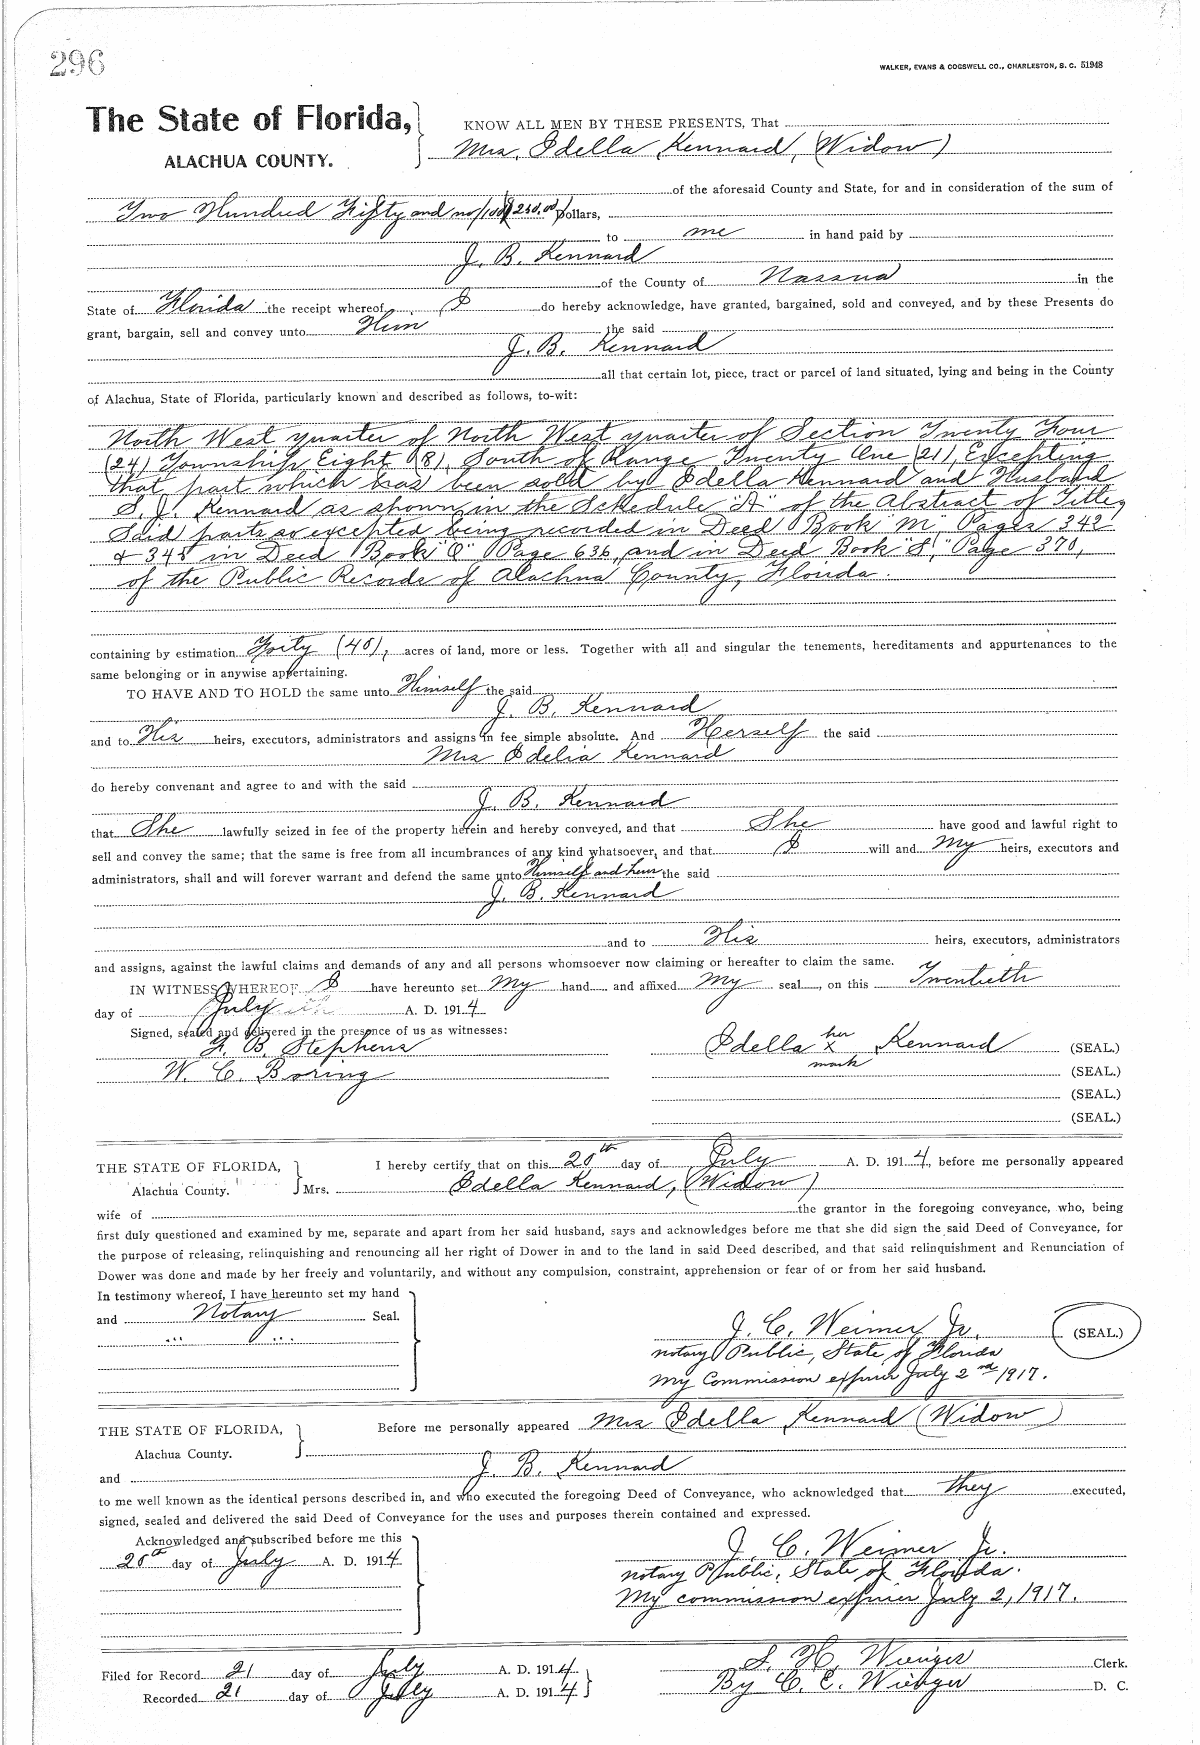 296
WALKER, EVANS & COGSWELL CO., CHARLESTON, S. C. 51948
The State of Florida,
ALACHUA COUNTY.
KNOW ALL MEN BY THESE PRESENTS, That
Mrs. Idella Kennard, (Widow)
of the aforesaid County and State, for and in consideration of the sum of
Two Hundred Fifty and no/100 $250.00 Dollars,
to me in hand paid by
J. B. Kennard
of the County of Nassua in the
State of Florida the receipt whereof I do hereby acknowledge, have granted, bargained, sold and conveyed, and by these Presents do
grant, bargain, sell and convey unto Him the said
J. B. Kennard
all that certain lot, piece, tract or parcel of land situated, lying and being in the County
of Alachua, State of Florida, particularly known and described as follows, to-wit:
North West quarter of North West quarter of Section Twenty Four
(24) Township Eight (8), South of Range Twenty One (21), Excepting
that part which has been sold by Idella Kennard and Husband
S. J. Kennard as shown in the Schedule "A" of the Abstract of Title,
Said parts so excepted being recorded in Deed Book "M" Pages 342
& 345 in Deed Book "Q" Page 636, and in Deed Book "S," Page 370,
of the Public Records of Alachua County, Florida.
containing by estimation Forty (40), acres of land, more or less. Together with all and singular the tenements, hereditaments and appurtenances to the
same belonging or in anywise appertaining.
TO HAVE AND TO HOLD the same unto Himself the said
J. B. Kennard
and to His heirs, executors, administrators and assigns in fee simple absolute. And Herself the said
Mrs Idelia Kennard
do hereby convenant and agree to and with the said
J. B. Kennard
that She lawfully seized in fee of the property herein and hereby conveyed, and that She have good and lawful right to
sell and convey the same; that the same is free from all incumbrances of any kind whatsoever, and that I will and My heirs, executors and
administrators, shall and will forever warrant and defend the same unto Himself and heirs the said
J. B. Kennard
and to His heirs, executors, administrators
and assigns, against the lawful claims and demands of any and all persons whomsoever now claiming or hereafter to claim the same.
IN WITNESS WHEREOF I have hereunto set My hand and affixed My seal, on this Twentieth
day of July A. D. 1914
Signed, sealed and delivered in the presence of us as witnesses:
F. B. Stephens
W. C. Boring
Idella her x mark Kennard (SEAL.)
(SEAL.)
(SEAL.)
(SEAL.)
THE STATE OF FLORIDA,
Alachua County.
I hereby certify that on this 20th day of July A. D. 1914, before me personally appeared
Mrs. Idella Kennard, (Widow)
wife of the grantor in the foregoing conveyance, who, being
first duly questioned and examined by me, separate and apart from her said husband, says and acknowledges before me that she did sign the said Deed of Conveyance, for
the purpose of releasing, relinquishing and renouncing all her right of Dower in and to the land in said Deed described, and that said relinquishment and Renunciation of
Dower was done and made by her freely and voluntarily, and without any compulsion, constraint, apprehension or fear of or from her said husband.
In testimony whereof, I have hereunto set my hand
and Notary Seal.
J. C. Weimer Jr. (SEAL.)
notary Public, State of Florida
My Commission expires July 2nd 1917.
THE STATE OF FLORIDA,
Alachua County.
Before me personally appeared Mrs Idella Kennard (Widow)
and J. B. Kennard
to me well known as the identical persons described in, and who executed the foregoing Deed of Conveyance, who acknowledged that they executed,
signed, sealed and delivered the said Deed of Conveyance for the uses and purposes therein contained and expressed.
Acknowledged and subscribed before me this
20th day of July A. D. 1914
J. C. Weimer Jr.
notary Public, State of Florida.
My commission expires July 2, 1917.
Filed for Record 21 day of July A. D. 1914
Recorded 21 day of July A. D. 1914
S. H. Wienges Clerk.
By C. E. Wienges D. C.